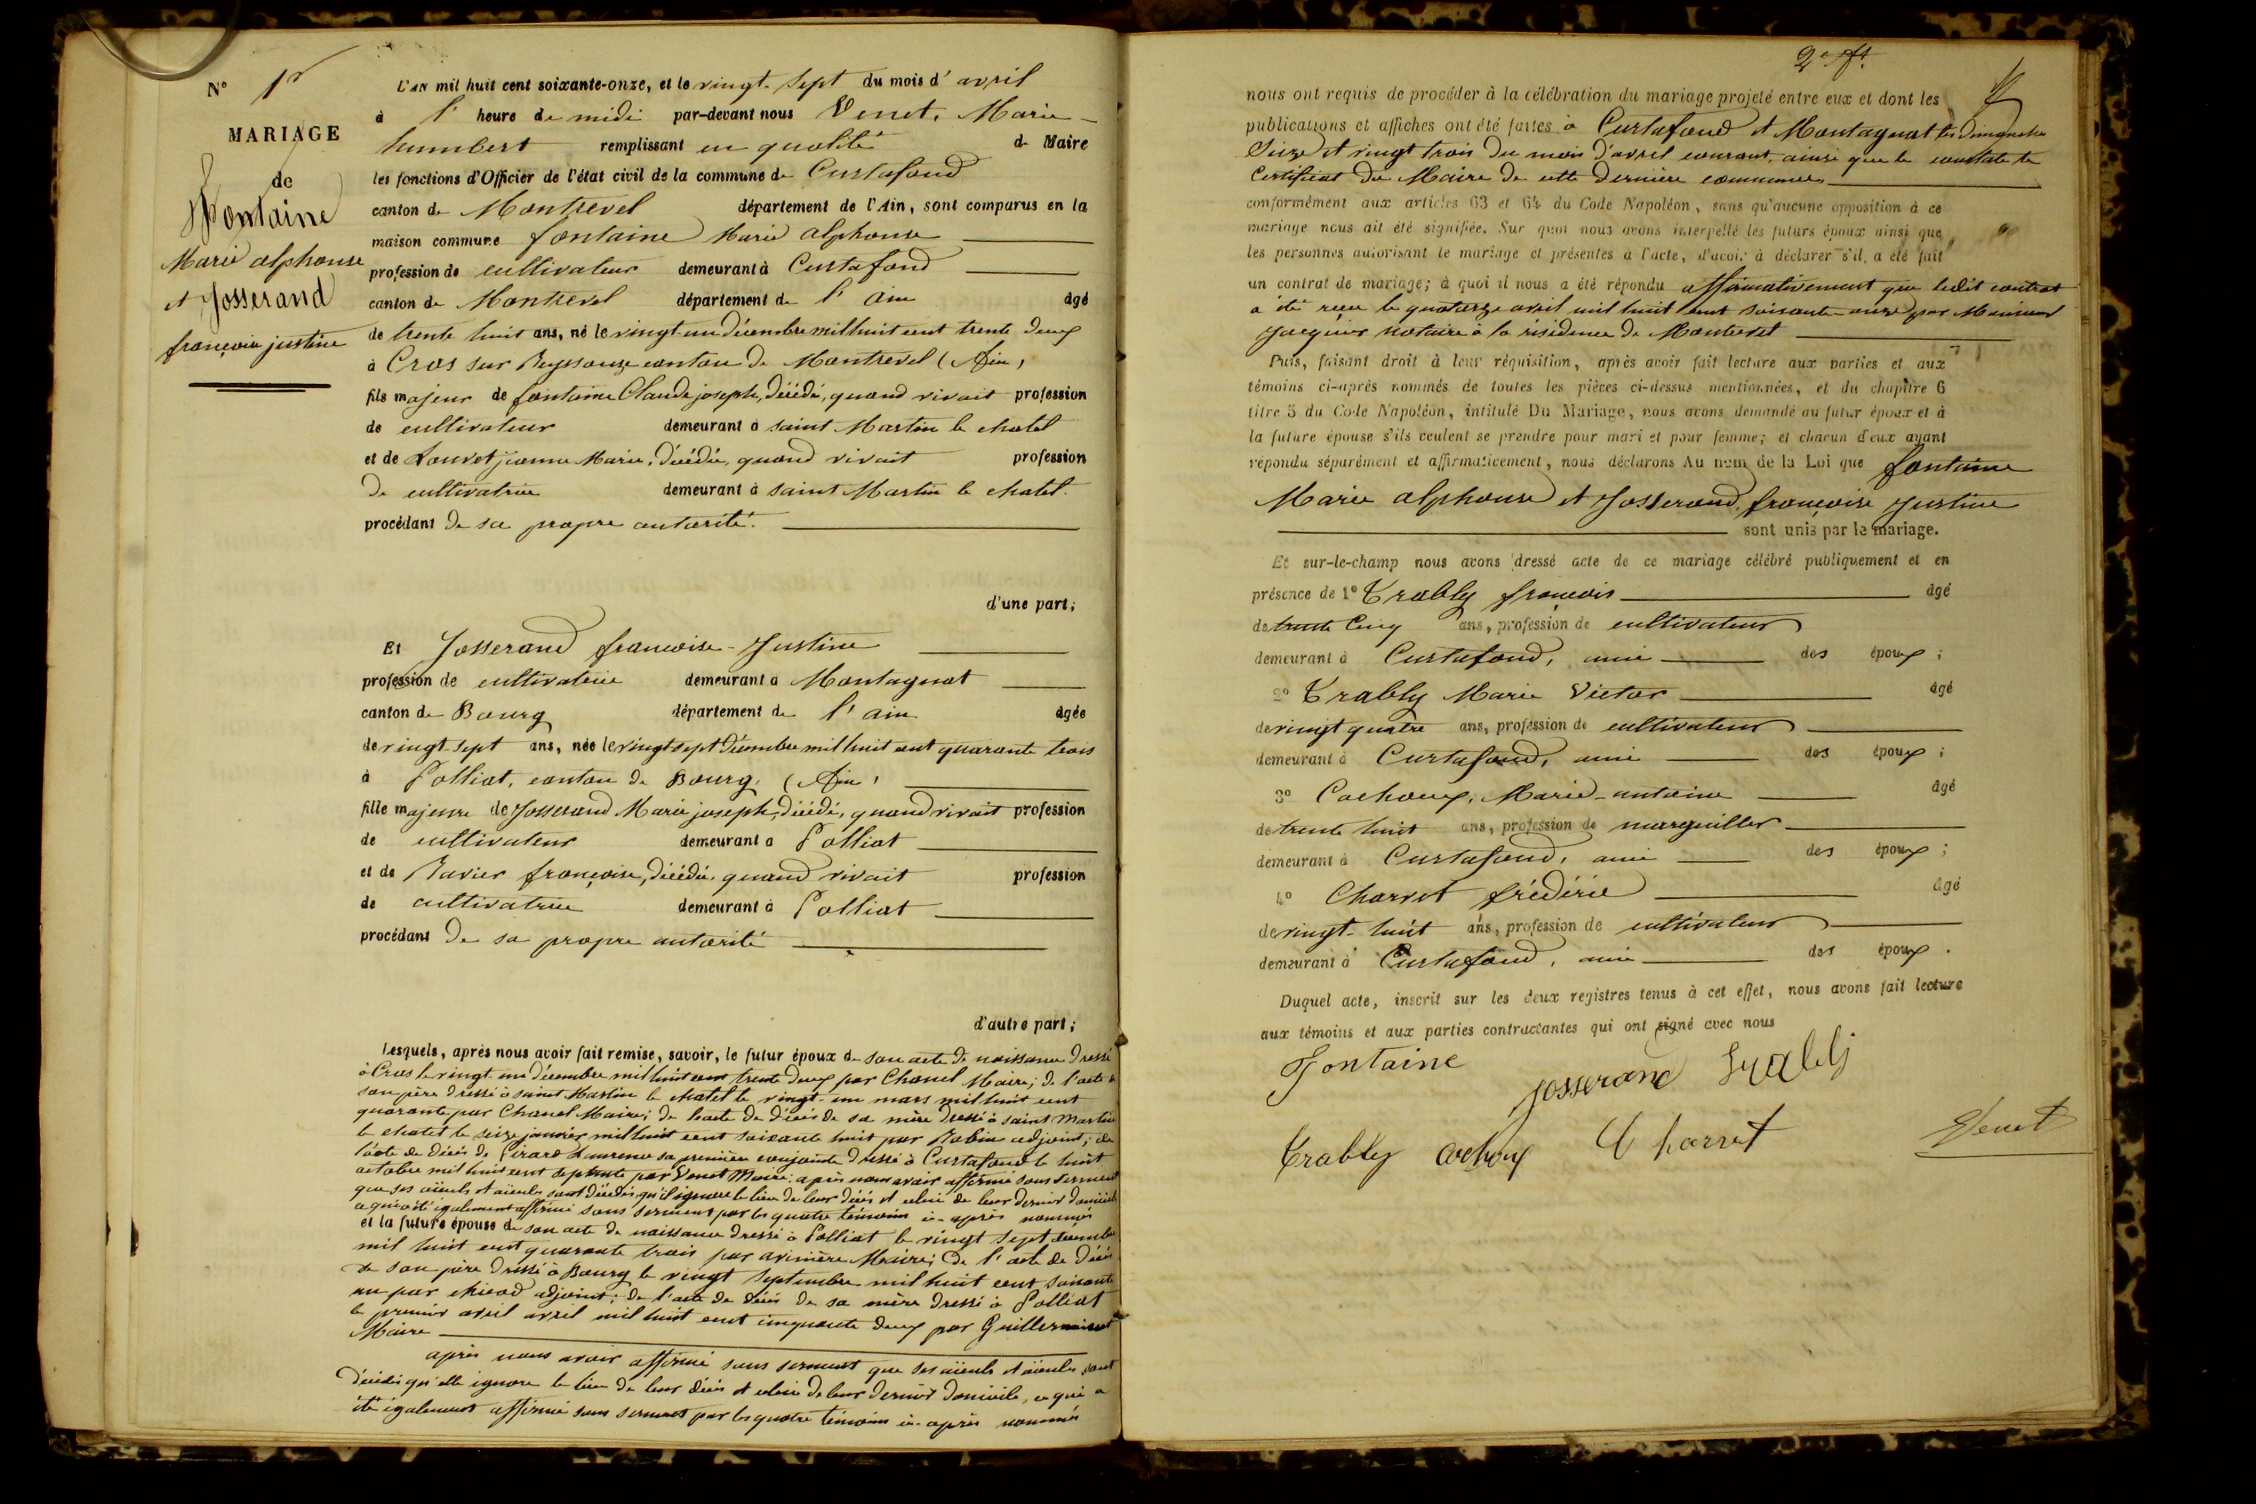 N° 1r
MARIAGE
de
Fontaine
Marie alphonse
et Josserand
françoise justine
L'AN mil huit cent soixante-onze, et le vingt-sept du mois d'avril
à l' heure de midi par-devant nous Venet, Marie-
humbert remplissant en qualité de Maire
les fonctions d'Officier de l'état civil de la commune de Curtafond
canton de Montrevel département de l'Ain, sont comparus en la
maison commune fontaine Marie alphonse
profession de cultivateur demeurant à Curtafond
canton de Montrevel département de l'ain âgé
de trente huit ans, né le vingt un décembre mil huit cent trente deux
à Cras sur Reyssouze canton de Montrevel (Ain)
fils majeur de fontaine Claude joseph, décédé, quand vivait profession
de cultivateur demeurant à saint Martin le chatel
et de Louvet jeanne Marie, décédée, quand vivait profession
de cultivatrice demeurant à saint Martin le chatel.
procédant de sa propre autorité.
d'une part;
Et Josserand françoise-Justine
profession de cultivatrice demeurant à Montagnat
canton de Bourg département de l'ain âgée
de vingt-sept ans, née le vingt sept décembre mil huit cent quarante trois
à Polliat, canton de Bourg (Ain)
fille majeure de Josserand Marie joseph, décédé, quand vivait profession
de cultivateur demeurant à Polliat
et de Ravier françoise, décédée, quand vivait profession
de cultivatrice demeurant à Polliat
procédant de sa propre autorité
d'autre part;
Lesquels, après nous avoir fait remise, savoir, le futur époux de son acte de naissance dressé
à Cras le vingt un décembre mil huit cent trente deux par Chanel Maire; de l'acte de
son père dressé à saint Martin le chatel le vingt-un mars mil huit cent
quarante par Chanel Maire; de l'acte de décès de sa mère dressé à saint Martin
le chatel le seize janvier mil huit cent soixante huit par Robin adjoint; de
l'acte de décès de Pirard Laurence sa première conjointe dressé à Curtafond le huit
octobre mil huit cent septante par Venet Maire. après nous avoir affirmé sous serment
que ses aïeuls et aïeules sont décédés qu'il ignore le lieu de leur décès et celui de leur dernier domicile
ce qui a été également affirmé sous serment par les quatre témoins ci-après nommés
et la future épouse de son acte de naissance dressé à Polliat le vingt sept décembre
mil huit cent quarante trois par Maire; de l'acte de décès
de son père dressé à Bourg le vingt septembre mil huit cent soixante
un par chicod adjoint; de l'acte de décès de sa mère dressé à Polliat
le premier avril avril mil huit cent cinquante deux par Guillerminet
Maire
après nous avoir affirmé sous serment que ses aïeuls et aïeules sont
décédés qu'elle ignore le lieu de leur décès et celui de leur dernier domicile, ce qui a
été également affirmé sous serment par les quatre témoins ci-après nommés
nous ont requis de procéder à la célébration du mariage projeté entre eux et dont les
publications et affiches ont été faites à Curtafond et Montagnat les dimanches
Seize et vingt trois du mois d'avril courant, ainsi que le constate le
Certificat du Maire de cette dernière commune
conformément aux articles 63 et 64 du Code Napoléon, sans qu'aucune opposition à ce
mariage nous ait été signifiée. Sur quoi nous avons interpellé les futurs époux ainsi que
les personnes autorisant le mariage et présentes à l'acte, d'avoir à déclarer s'il a été fait
un contrat de mariage; à quoi il nous a été répondu affirmativement que ledit contrat
a été reçu le quatorze avril mil huit cent soixante onze par Monsieur
Jacquier notaire à la résidence de Montrevel
Puis, faisant droit à leur réquisition, après avoir fait lecture aux parties et aux
témoins ci-après nommés de toutes les pièces ci-dessus mentionnées, et du chapitre 6
titre 5 du Code Napoléon, intitulé Du Mariage, nous avons demandé au futur époux et à
la future épouse s'ils veulent se prendre pour mari et pour femme; et chacun d'eux ayant
répondu séparément et affirmativement, nous déclarons Au nom de la Loi que fontaine
Marie alphonse et Josserand, françoise Justine
sont unis par le mariage.
Et sur-le-champ nous avons dressé acte de ce mariage célébré publiquement et en
présence de 1° Trably françois âgé
de trente Cinq ans, profession de cultivateur
demeurant à Curtafond, ami des époux;
2° Trably Marie Victor âgé
de vingt quatre ans, profession de cultivateur
demeurant à Curtafond, ami des époux;
3° Cochoux, Marie-antoine âgé
de trente huit ans, profession de marguiller
demeurant à Curtafond, ami des époux;
4° Charvet frédéric âgé
de vingt-huit ans, profession de cultivateur
demeurant à Curtafond, ami des époux.
Duquel acte, inscrit sur les deux registres tenus à cet effet, nous avons fait lecture
aux témoins et aux parties contractantes qui ont signé avec nous
Fontaine josserand Trably
Trably cochoux Charvet Venet